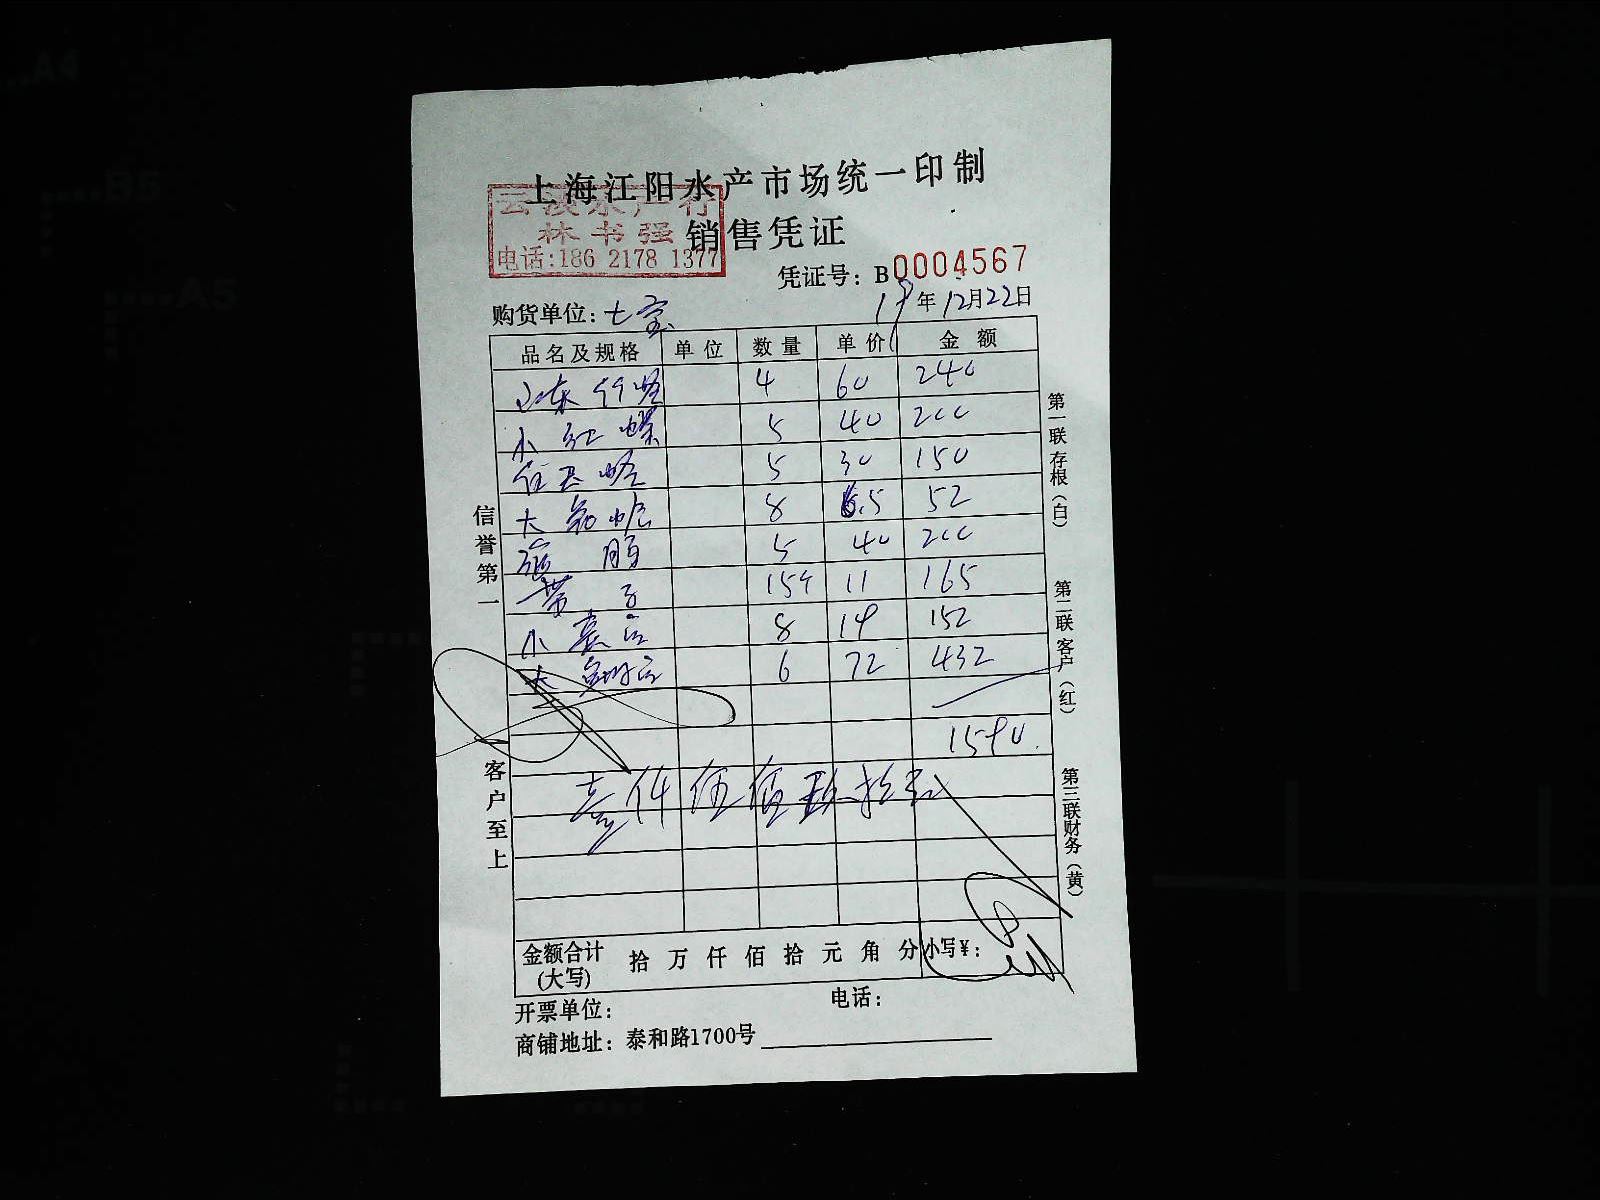 上海江阳水产市场统一印制
水产行
林书强
销售凭证
电话:186 2178 1377
凭证号: B0004567
购货单位: 七宝
19年12月22日
品名及规格 单位 数量 单价 金额
山东 4 60 240
小红 5 40 200
5 30 150
大 8 6.5 52
5 40 200
带子 15 11 165
小 8 19 152
大 6 72 432
1590.
壹仟伍佰玖拾
金额合计(大写) 拾 万 仟 佰 拾 元 角 分 小写¥:
开票单位: 电话:
商铺地址: 泰和路1700号
信誉第一
客户至上
第一联 存根(白)
第二联 客户(红)
第三联 财务(黄)